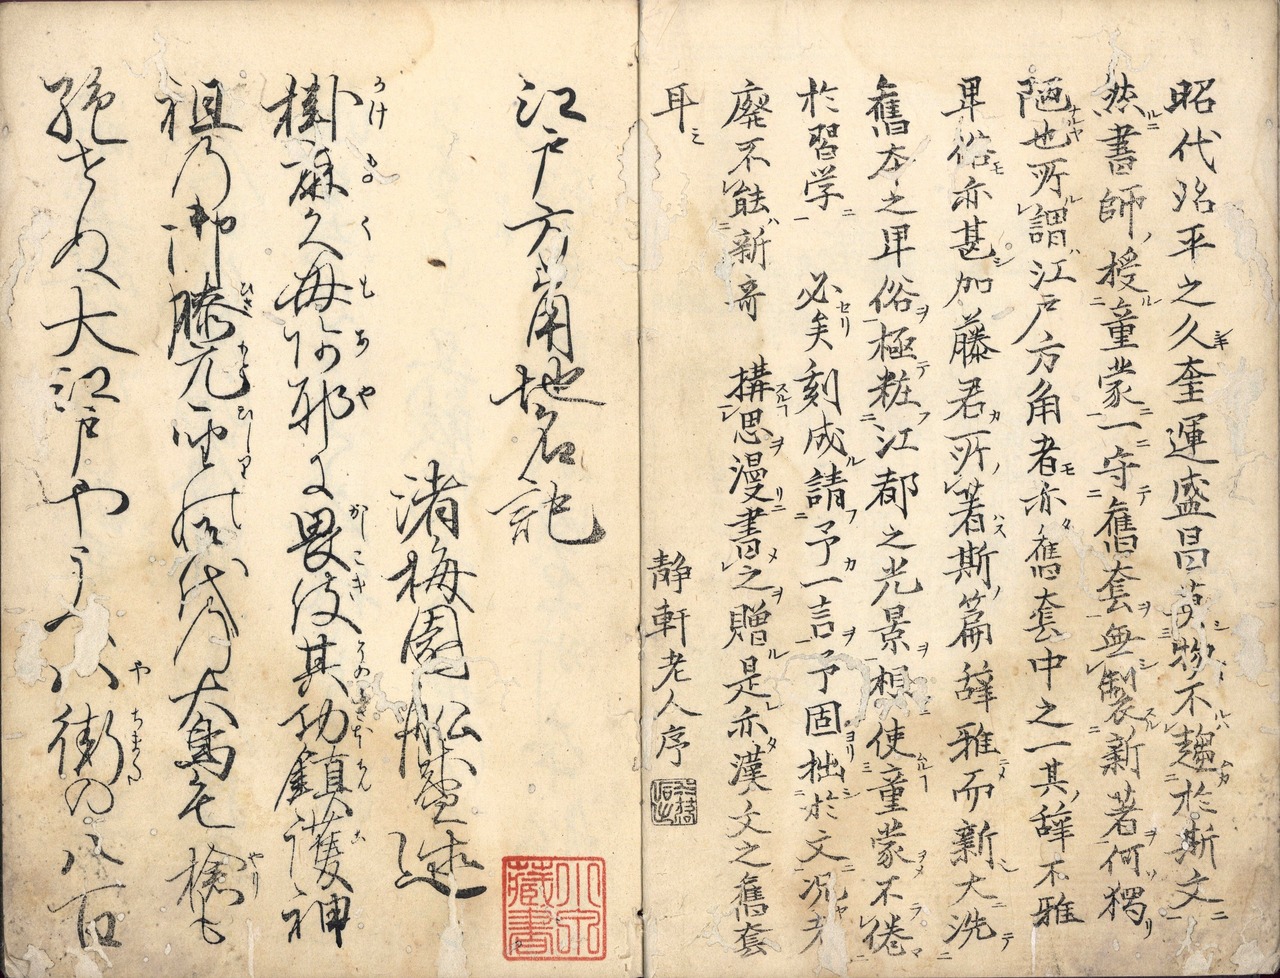 昭代治平之久奎運盛昌莫物不趨於斯文
然書師授童蒙一守舊套無製新著何獨
陋也所謂江戸方角者亦舊套中之一其辞不雅
卑俗亦甚加藤君所著斯篇辞雅而新大洗
舊本之卑俗極粧江都之光景想使童蒙不倦
於習学必矣刻成請予一言予固拙於文況老
廃不能新奇構思漫書之贈是亦漢文之舊套
耳
静軒老人序
江戸方角地名記
渚梅園松盛述
掛麻久毎阿耶に畏伎其功鎮護神
祖乃御膝元聖代乃大鳥毛槍も
絶せぬ大江戸や八街の八百
小宗蔵書